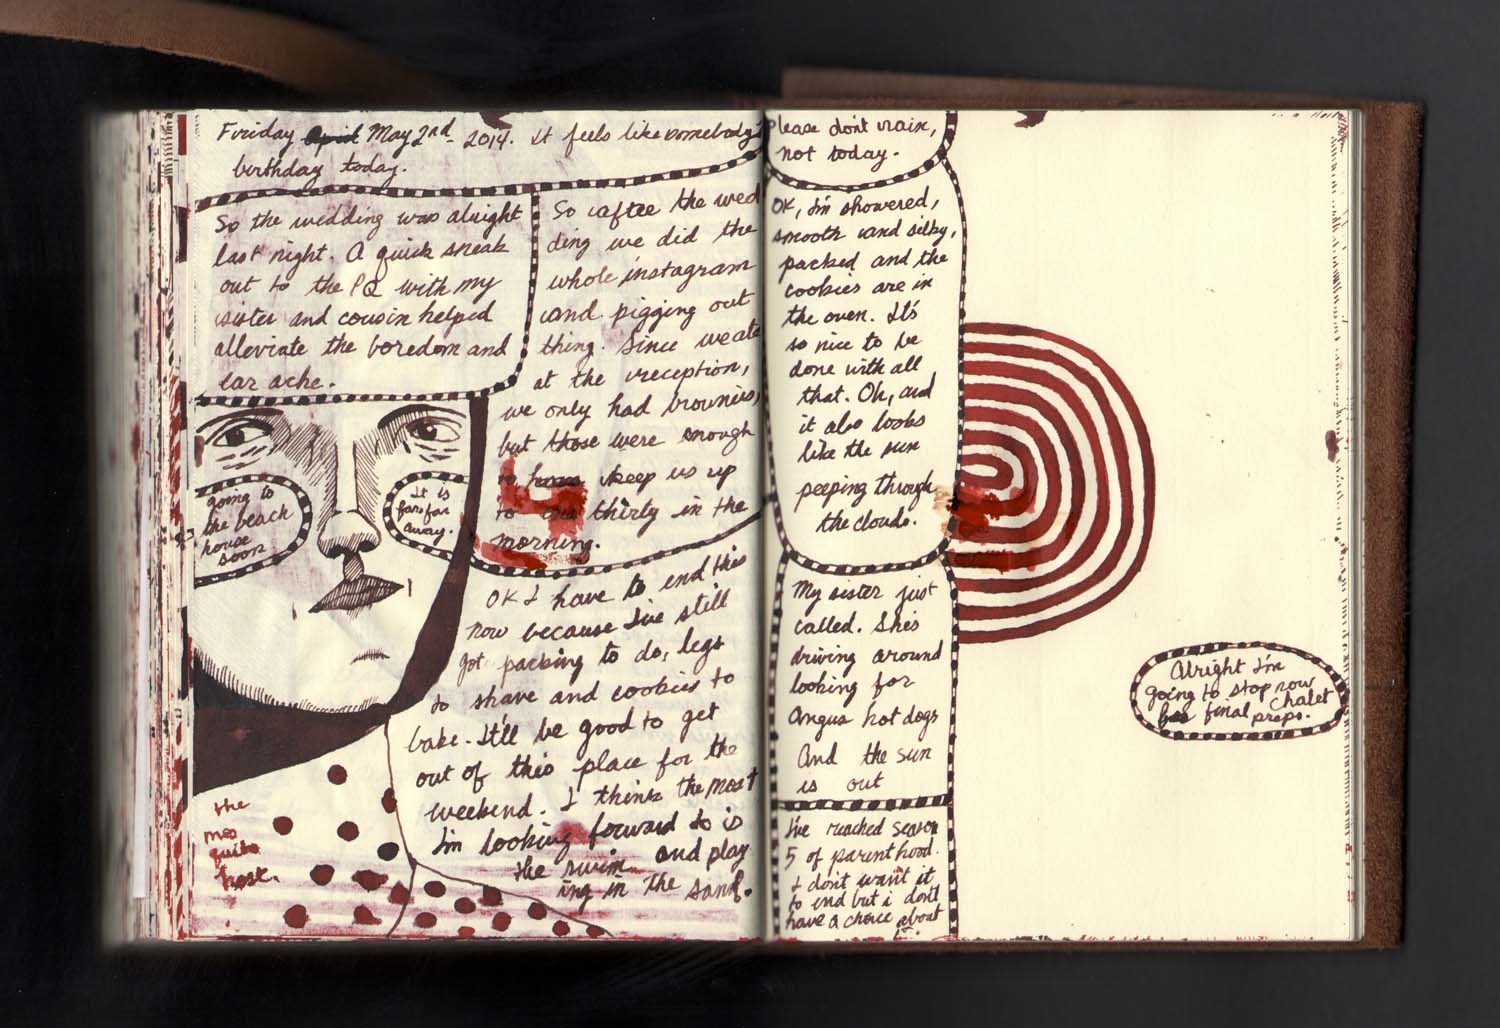 Friday April May 2nd - 2014. It feels like somebody's
birthday today.
So the wedding was alright
last night. A quick sneak
out to the PQ with my
sister and cousin helped
alleviate the boredom and
ear ache.
So after the wed
ding we did the
whole instagram
and pigging out
thing. Since we ate
at the reception,
we only had brownies,
but those were enough
to keep us up
to one thirty in the
morning.
going to
the beach
house
soon
It is
far far
away.
OK I have to end this
now because I've still
got packing to do, legs
to shave and cookies to
bake. It'll be good to get
out of this place for the
weekend. I think the most
I'm looking forward to is
the swim and play
ing in the sand.
the
mos
quito
host.
Please don't rain,
not today.
OK, I'm showered,
smooth and silky,
packed and the
cookies are in
the oven. It's
so nice to be
done with all
that. Oh, and
it also looks
like the sun
peeping through
the clouds.
My sister just
called. She's
driving around
looking for
Angus hot dogs
And the sun
is out
I've reached season
5 of parenthood.
I don't want it
to end but i don't
have a choice about
it.
Alright I'm
going to stop now
for final chalet
preps.